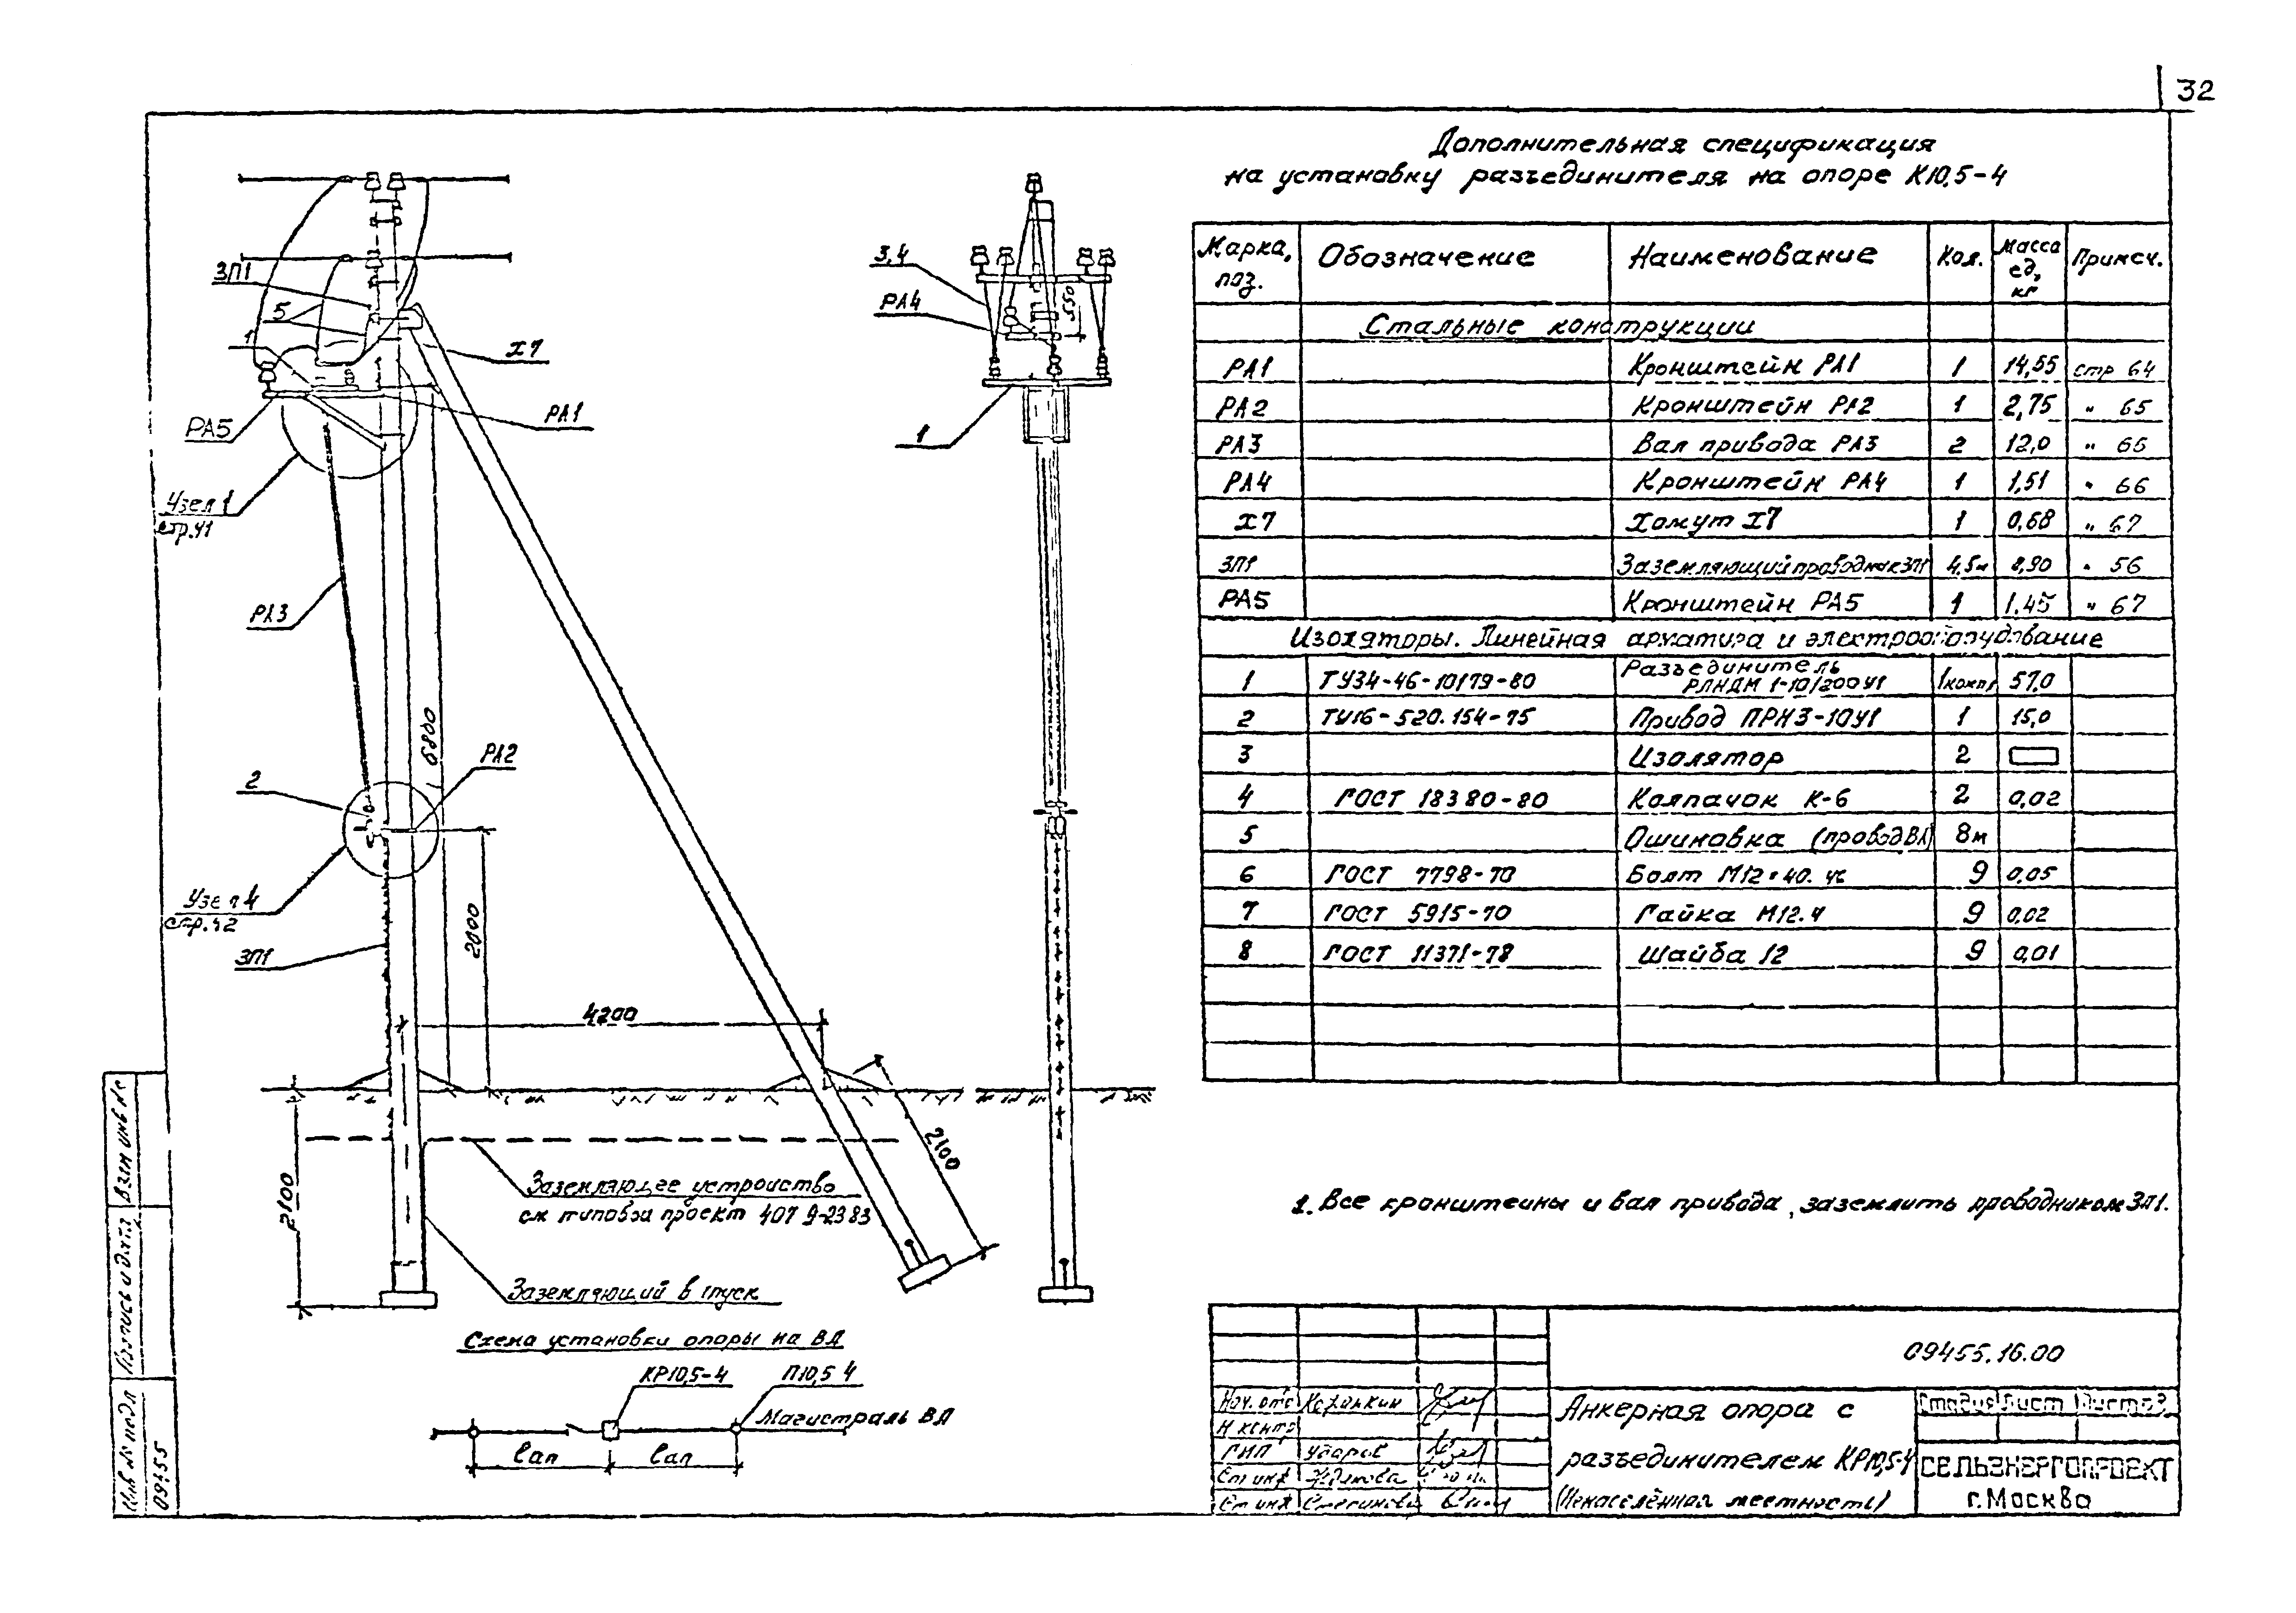 32
Дополнительная спецификация
на установку разъединителя на опоре К10,5-4
Марка, поз. Обозначение Наименование Кол. Масса ед, кг Примеч.
Стальные конструкции
РА1 Кронштейн РА1 1 14,55 стр 64
РА2 Кронштейн РА2 1 2,75 " 65
РА3 Вал привода РА3 2 12,0 " 65
РА4 Кронштейн РА4 1 1,51 " 66
Х7 Хомут Х7 1 0,68 " 67
ЗП1 Заземляющий проводник ЗП1 4,5м " 56
РА5 Кронштейн РА5 1 1.45 " 67
Изоляторы. Линейная арматура и электрооборудование
1 ТУ34-46-10179-80 Разъединитель РЛНДМ 1-10/200У1 1компл 57,0
2 ТУ16-520.154-75 Привод ПРНЗ-10У1 1 15,0
3 Изолятор 2
4 ГОСТ 18380-80 Колпачок К-6 2 0,02
5 Ошиновка (провод ВЛ) 8м
6 ГОСТ 7798-70 Болт М12×40. 9 0,05
7 ГОСТ 5915-70 Гайка М12.4 9 0,02
8 ГОСТ 11371-78 Шайба 12 9 0,01
1. Все кронштейны и вал привода, заземлить проводником ЗП1.
ЗП1
5
1
Х7
РА5
РА1
Узел 1
стр.41
РА3
6800
РА2
2
Узел 4
стр.42
ЗП1
2000
4200
2100
2100
3,4
РА4
550
1
Заземляющее устройство
см типовой проект 407 9-23 83
Заземляющий впуск
Схема установки опоры на ВЛ
КР10,5-4
П10,5 4
Магистраль ВЛ
ℓап ℓап
09455.16.00
Нач. отд
Н контр
ГИП Ударов
Ст инж
Ст инж
Анкерная опора с
разъединителем КР10,5-4
(Ненаселённая местность)
Стадия Лист Листов
СЕЛЬЭНЕРГОПРОЕКТ
г. Москва
Взам инв №
Подпись и дата
Инв № подл
09455